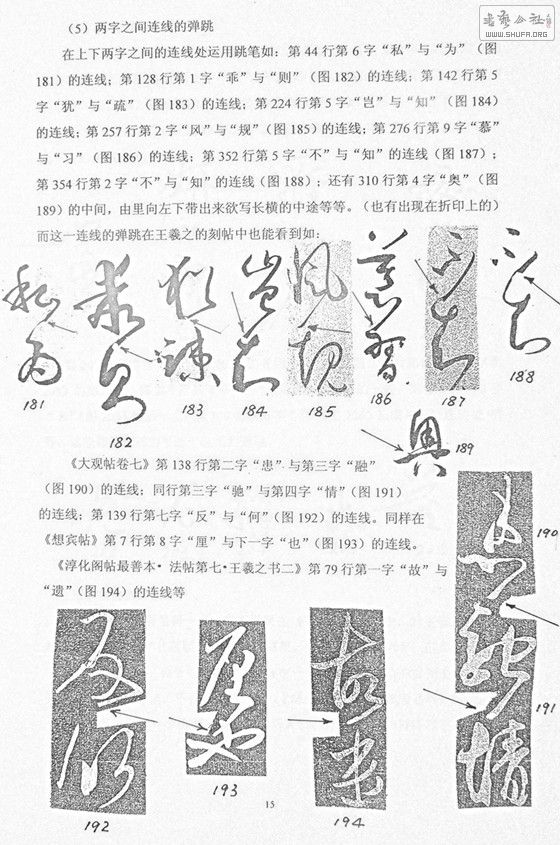 书艺公社
WWW.SHUFA.ORG
（5）两字之间连线的弹跳
在上下两字之间的连线处运用跳笔如：第 44 行第 6 字“私”与“为”（图
181）的连线；第 128 行第 1 字“乖”与“则”（图 182）的连线；第 142 行第 5
字“犹”与“疏”（图 183）的连线；第 224 行第 5 字“岂”与“知”（图 184）
的连线；第 257 行第 2 字“风”与“规”（图 185）的连线；第 276 行第 9 字“慕”
与“习”（图 186）的连线；第 352 行第 5 字“不”与“知”的连线（图 187）；
第 354 行第 2 字“不”与“知”的连线（图 188）；还有 310 行第 4 字“奥”（图
189）的中间，由里向左下带出来欲写长横的中途等等。（也有出现在折印上的）
而这一连线的弹跳在王羲之的刻帖中也能看到如：
私为
乖则
犹疏
岂知
风规
慕习
不知
不知
181
182
183
184
185
186
187
188
奥
189
《大观帖卷七》第 138 行第二字“患”与第三字“融”
（图 190）的连线；同行第三字“驰”与第四字“情”（图 191）
的连线；第 139 行第七字“反”与“何”（图 192）的连线。同样在
《想宾帖》第 7 行第 8 字“厘”与下一字“也”（图 193）的连线。
《淳化阁帖最善本·法帖第七·王羲之书二》第 79 行第一字“故”与
“遗”（图 194）的连线等
190
191
192
193
194
15